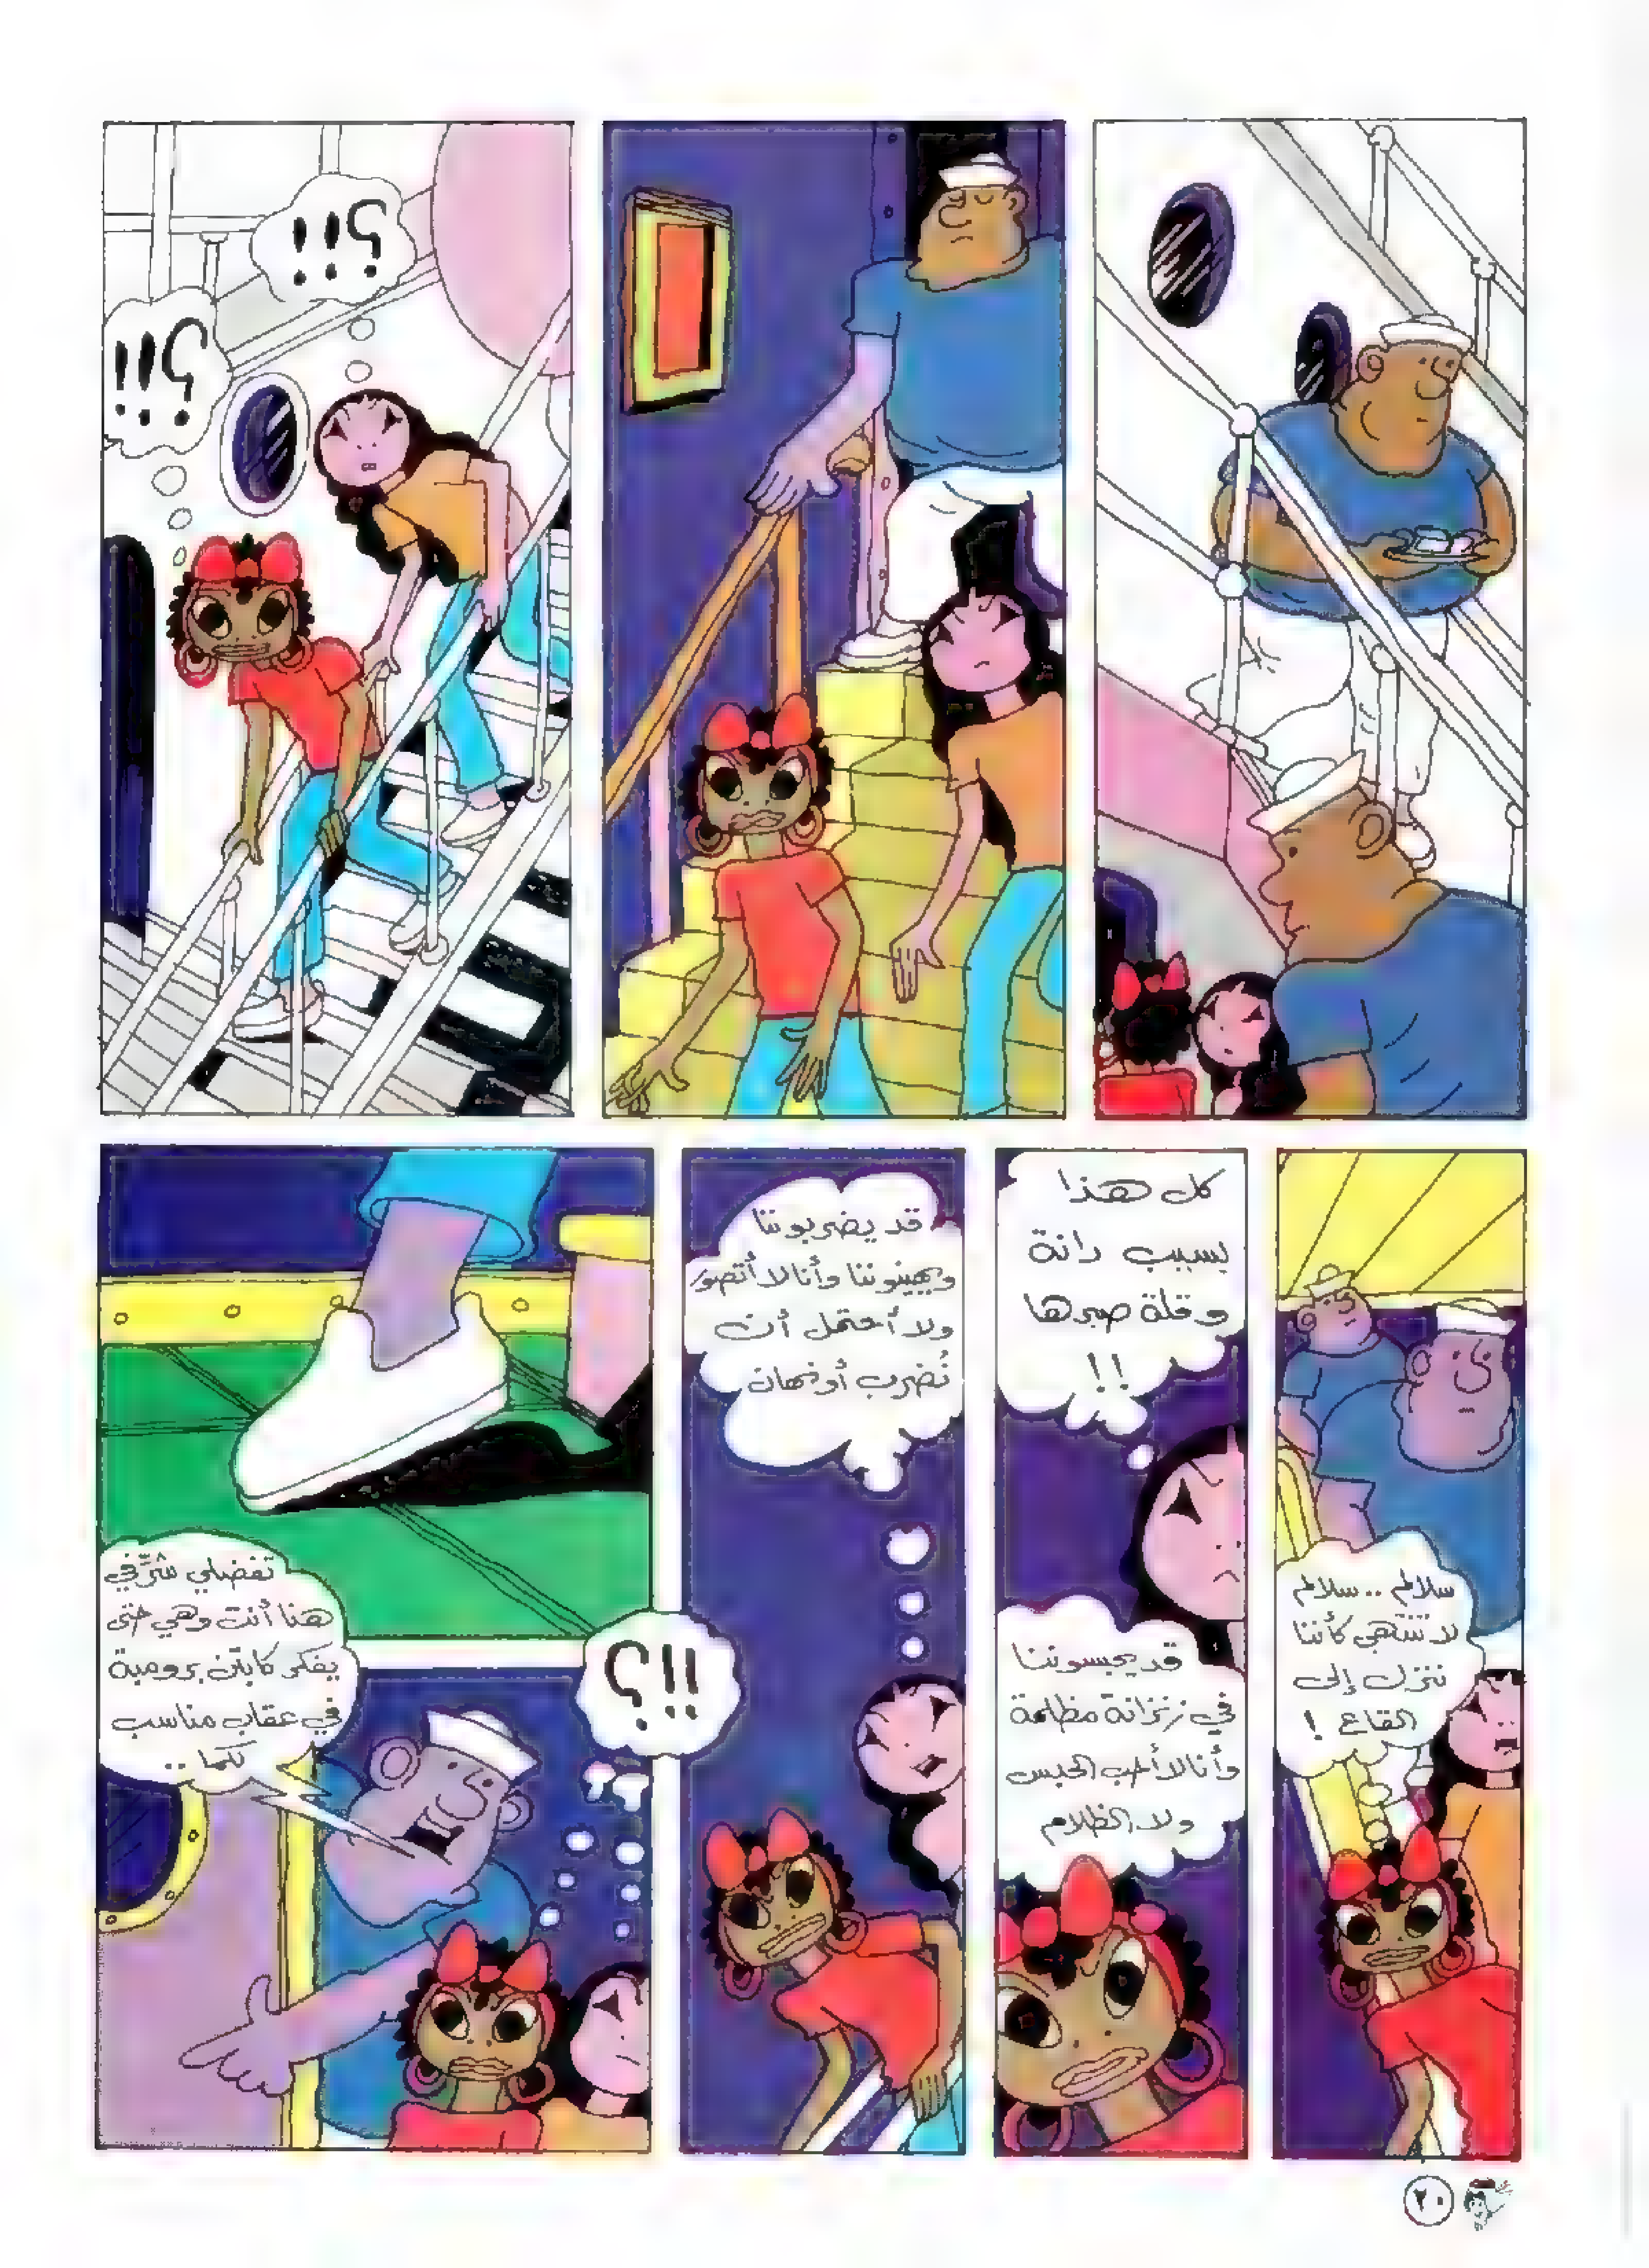 ؟!!
؟!!
سلالم .. سلالم
لا تنتهي كأننا
ننزل إلى
القاع !
كل هذا
بسبب دانة
وقلة صبرها
!!
قد يحبسوننا
في زنزانة مظلمة
وأنا لا أحب الحبس
ولا الظلام
قد يضربوننا
ويهينوننا وأنا لا أتصور
ولا أحتمل أن
نُضرب أو نهان
!!؟
تفضلي شرِّفي
هنا أنت وهي حتى
يفكر كابتن برومبة
في عقاب مناسب
لكما ..
٢٠